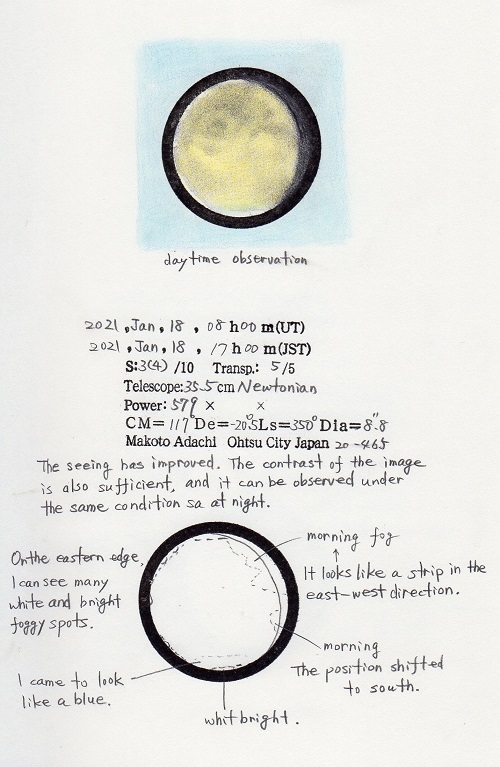 daytime observation
2021, Jan, 18, 08 h 00 m (UT)
2021, Jan, 18, 17 h 00 m (JST)
S: 3(4) /10 Transp.: 5/5
Telescope: 35.5 cm Newtonian
Power: 579 × ×
CM= 117° De= -20.5 Ls= 350° Dia= 8.″8
Makoto Adachi Ohtsu City Japan 20-465
The seeing has improved. The contrast of the image
is also sufficient, and it can be observed under
the same condition sa at night.
On the eastern edge,
I can see many
white and bright
foggy spots.
morning fog
↑
It looks like a strip in the
east-west direction.
morning
The position shifted
to south.
I came to look
like a blue.
whit bright.